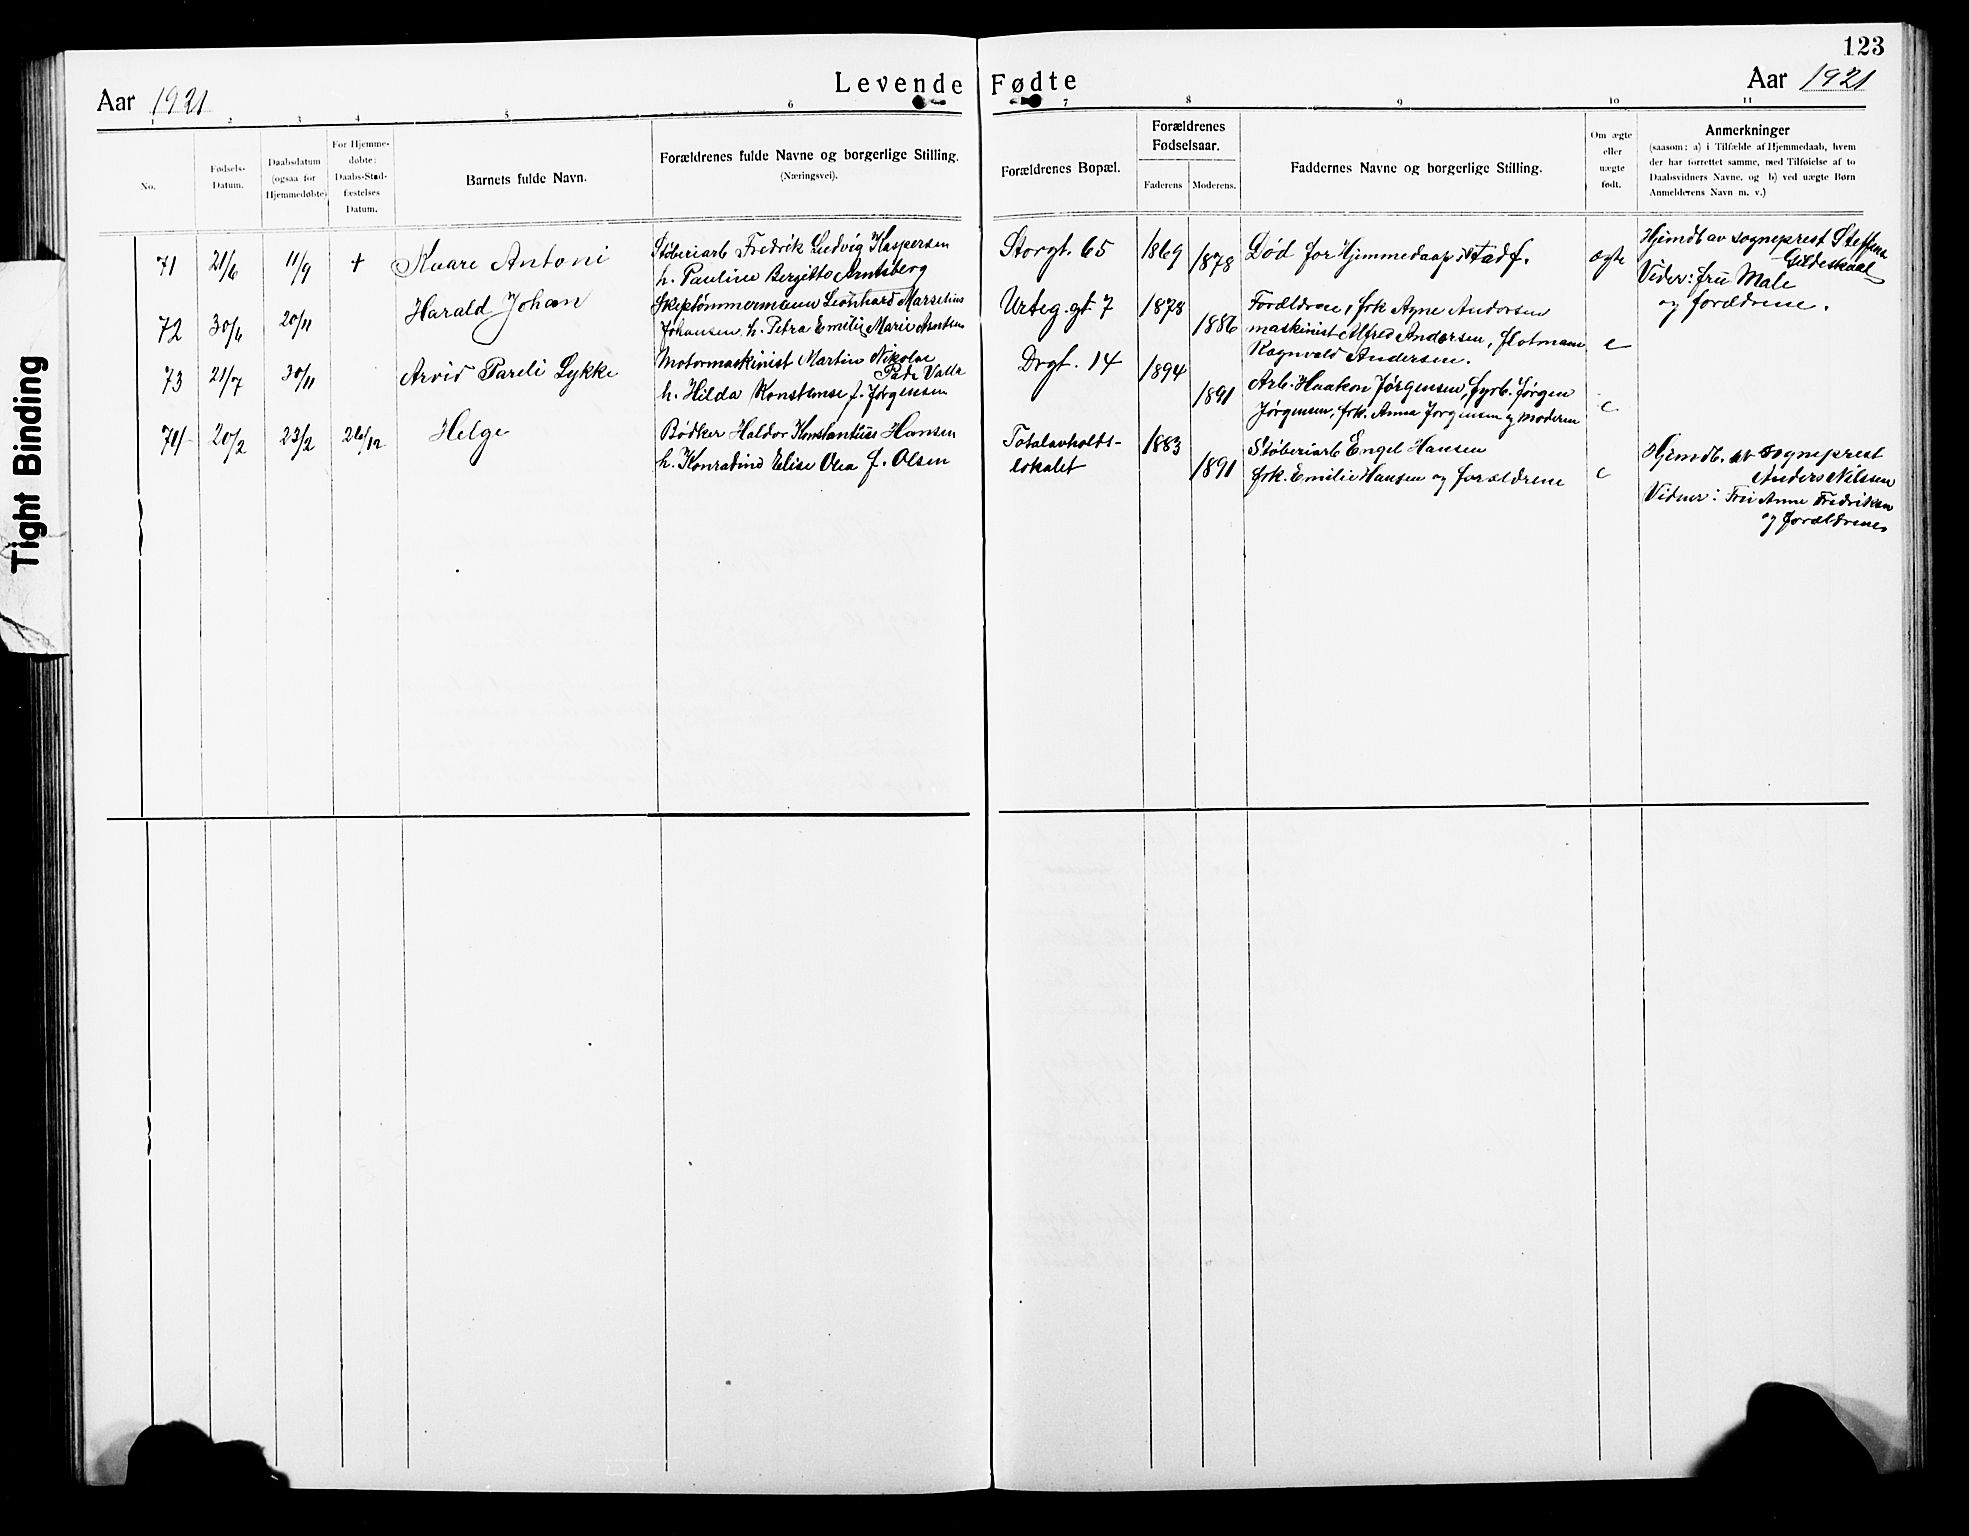 123
Levende Fødte
Aar 1921
Aar 1921
1 2 3 4 5 6 7 8 9 10 11
No.
Fødsels-
Datum.
Daabsdatum
(ogsaa for
Hjemmedøbte)
For Hjemme-
døbte:
Daabs-Stad-
fæstelses
Datum.
Barnets fulde Navn.
Forældrenes fulde Navne og borgerlige Stilling.
(Næringsvei).
Forældrenes Bopæl.
Forældrenes
Fødselsaar.
Faderens
Moderens.
Faddernes Navne og borgerlige Stilling.
Om ægte
eller
uægte
født.
Anmerkninger
(saasom: a) i Tilfælde af Hjemmedaab, hvem
der har forrettet samme, med Tilføielse af to
Daabsvidners Navne, og b) ved uægte Børn
Anmelderens Navn m. v.)
71 21/6 11/9 + Kaare Antoni
Støberiarb Fredrik Ludvig Kaspersen
h. Pauline Bergitte Arntsberg
Storgt. 65 1869 1878 Død før Hjemmedaap stadf. ægte
Hjemdb av sogneprest Steffens
Gildeskaal
Vidner: fru Male
og forældrene.
72 30/6 20/11 Harald Johan
Skiptømmermann Leonhard Marselius
Johansen, h. Petra Emilie Marie Arntsen
Urteg.gt 7 1878 1886
Forældrene, frk Agne Andersen
maskinist Alfred Andersen, flotmann
Ragnvald Andersen. e
73 21/7 30/11 Arvid Pareli Lykke
Motormaskinist Martin Nikolai
Valla
h. Hilda Konstanse f. Jørgensen
Drgt. 14 1894 1891
Arb. Haakon Jørgensen, fyrb. Jørgen
Jørgensen, frk. Anna Jørgensen og moderen e
74 20/2 23/2 26/12 Helge
Bødker Haldor Konstantius Hansen
h. Konradine Elise Olea f. Olsen
Totalavholds-
lokalet
1883 1891
Støberiarb Engel Hansen
frk. Emilie Hansen og forældrene e
Hjemdb. av sogneprest
Anders Nilssen
Vidner: Fru Anne Fredriksen
og forældrene
Tight Binding